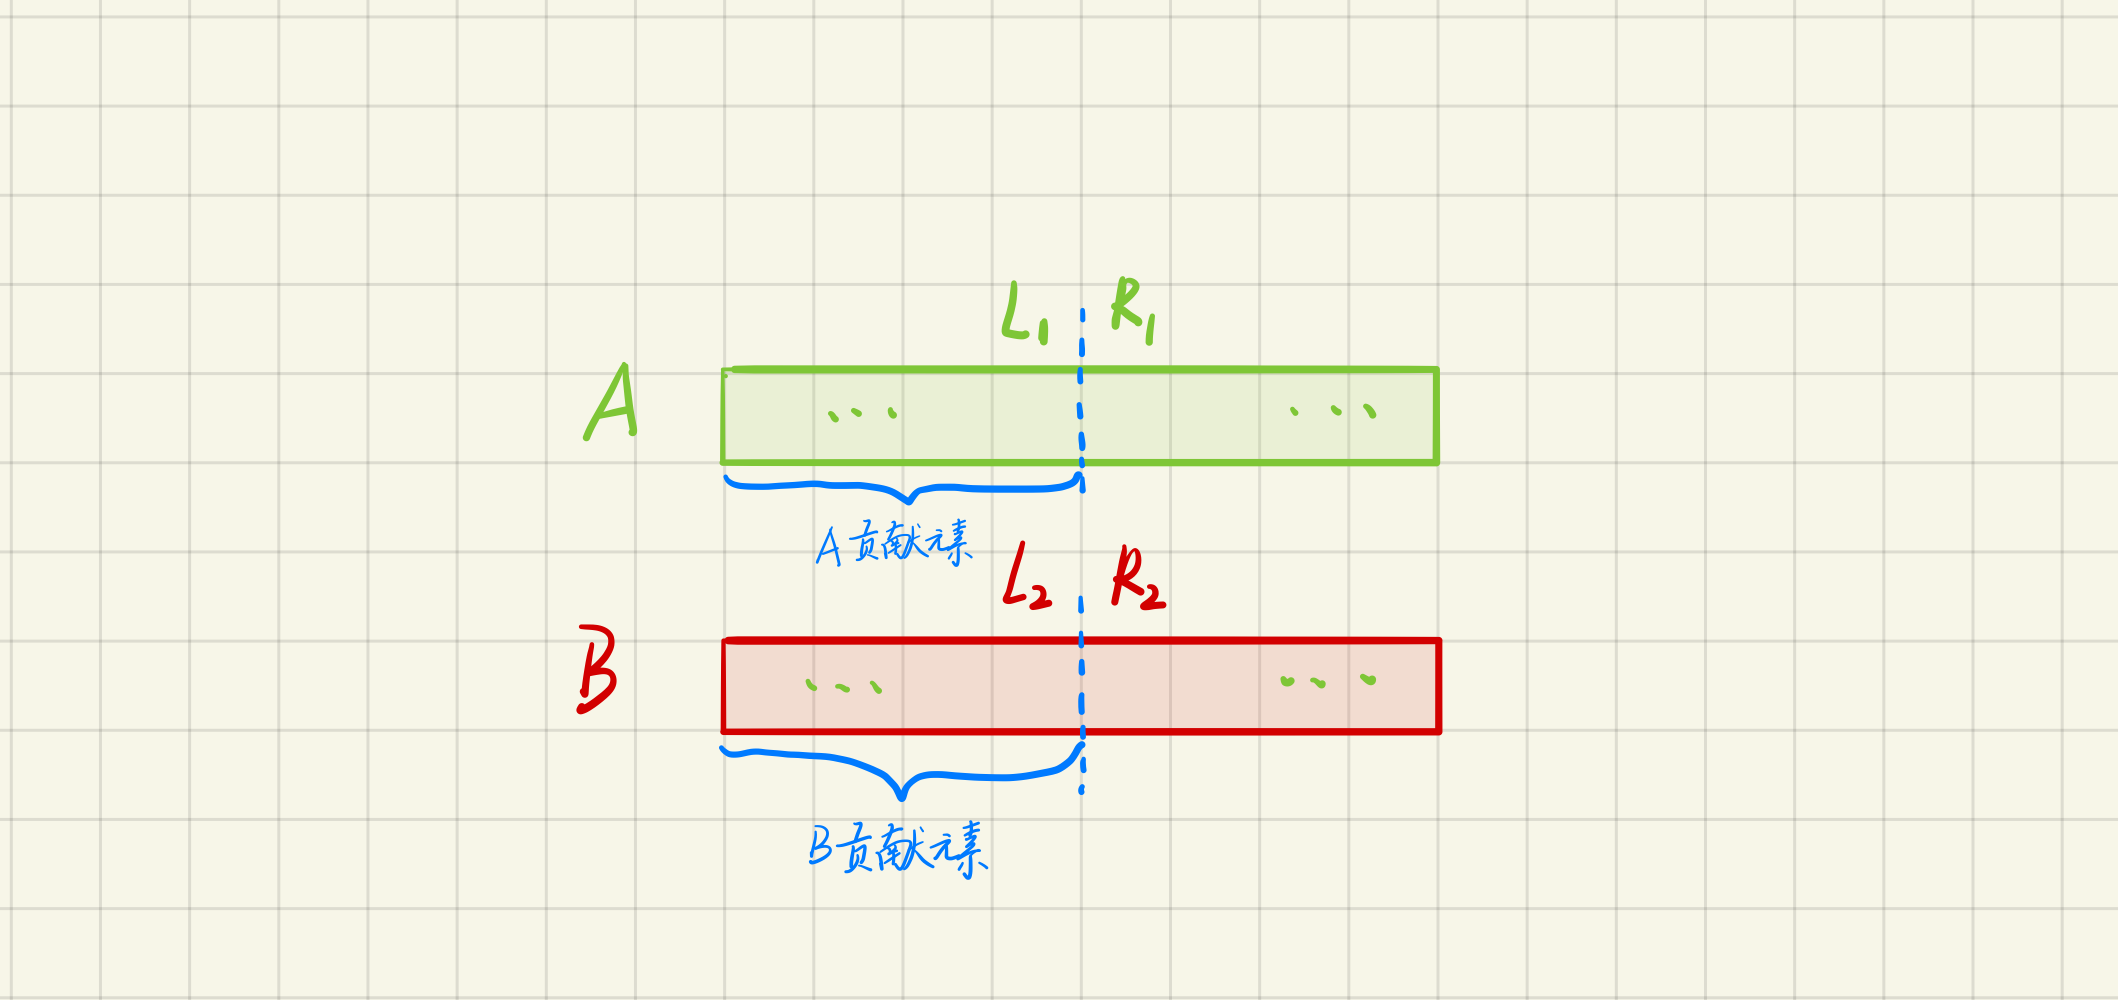 L1 R1
A
A贡献元素
L2 R2
B
B贡献元素